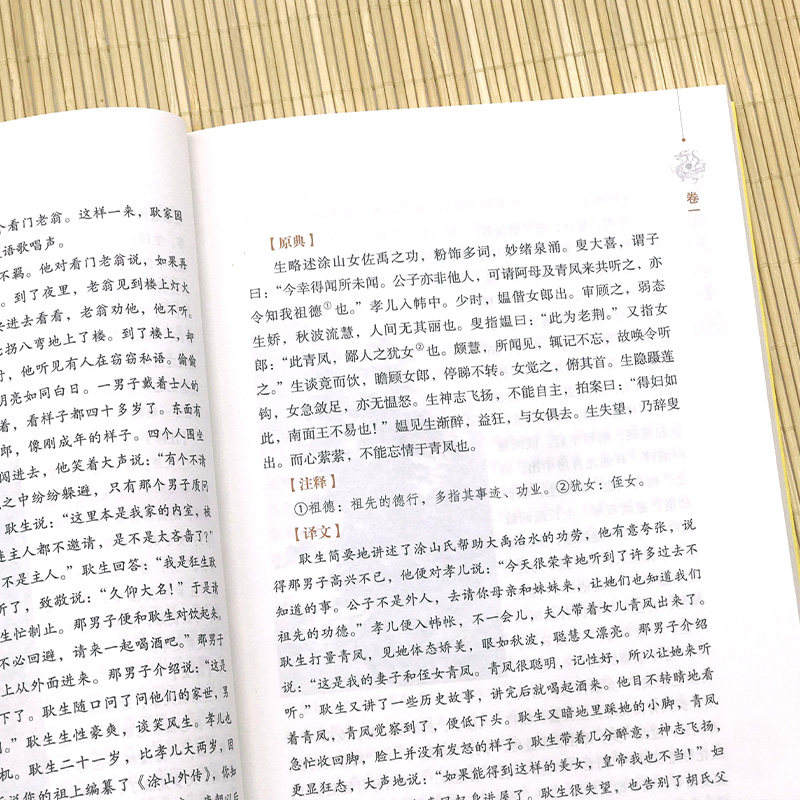 个看门老翁。这样一来，耿家因
语歌唱声。
不羁。他对看门老翁说，如果再
。到了夜里，老翁见到楼上灯火
进去看看，老翁劝他，他不听。
拐八弯地上了楼。到了楼上，却
时，他听见有人在窃窃私语。偷偷
明亮如同白日。一男子戴着士人的
着，看样子都四十多岁了。东面有
郎，像刚成年的样子。四个人围坐
闯进去，他笑着大声说：“有个不请
之中纷纷躲避，只有那个男子质问
耿生说：“这里本是我家的内室，被
主人都不邀请，是不是太吝啬了？”
不是主人。”耿生回答：“我是狂生耿
听了，致敬说：“久仰大名！”于是请
生忙制止。那男子便和耿生对饮起来。
不必回避，请来一起喝酒吧。”那男子
上从外面进来。那男子介绍说：“这是
下了。耿生随口问了问他们的家世，男
”耿生生性豪爽，谈笑风生。孝儿也
机。耿生二十一岁，比孝儿大两岁，因
说你的祖上编纂了《涂山外传》，你知
卷一
【原典】
生略述涂山女佐禹之功，粉饰多词，妙绪泉涌。叟大喜，谓子
曰：“今幸得闻所未闻。公子亦非他人，可请阿母及青凤来共听之，亦
令知我祖德①也。”孝儿入帏中。少时，媪偕女郎出。审顾之，弱态
生娇，秋波流慧，人间无其丽也。叟指媪曰：“此为老荆。”又指女
郎：“此青凤，鄙人之犹女②也。颇慧，所闻见，辄记不忘，故唤令听
之。”生谈竟而饮，瞻顾女郎，停睇不转。女觉之，俯其首。生隐蹑莲
钩，女急敛足，亦无愠怒。生神志飞扬，不能自主，拍案曰：“得妇如
此，南面王不易也！”媪见生渐醉，益狂，与女俱去。生失望，乃辞叟
出。而心萦萦，不能忘情于青凤也。
【注释】
①祖德：祖先的德行，多指其事迹、功业。②犹女：侄女。
【译文】
耿生简要地讲述了涂山氏帮助大禹治水的功劳，他有意夸张，说
得那男子高兴不已，他便对孝儿说：“今天很荣幸地听到了许多过去不
知道的事。公子不是外人，去请你母亲和妹妹来，让她们也知道我们
祖先的功德。”孝儿便入帏帐，不一会儿，夫人带着女儿青凤出来了。
耿生打量青凤，见她体态娇美，眼如秋波，聪慧又漂亮。那男子介绍
说：“这是我的妻子和侄女青凤。青凤很聪明，记性好，所以让她来听
听。”耿生又讲了一些历史故事，讲完后就喝起酒来。他目不转睛地看
着青凤，青凤觉察到了，便低下头。耿生又暗地里踩她的小脚，青凤
急忙收回脚，脸上并没有发怒的样子。耿生带着几分醉意，神志飞扬，
更显狂态，大声地说：“如果能得到这样的美女，皇帝我也不当！”妇
耿生很失望，也告别了胡氏父